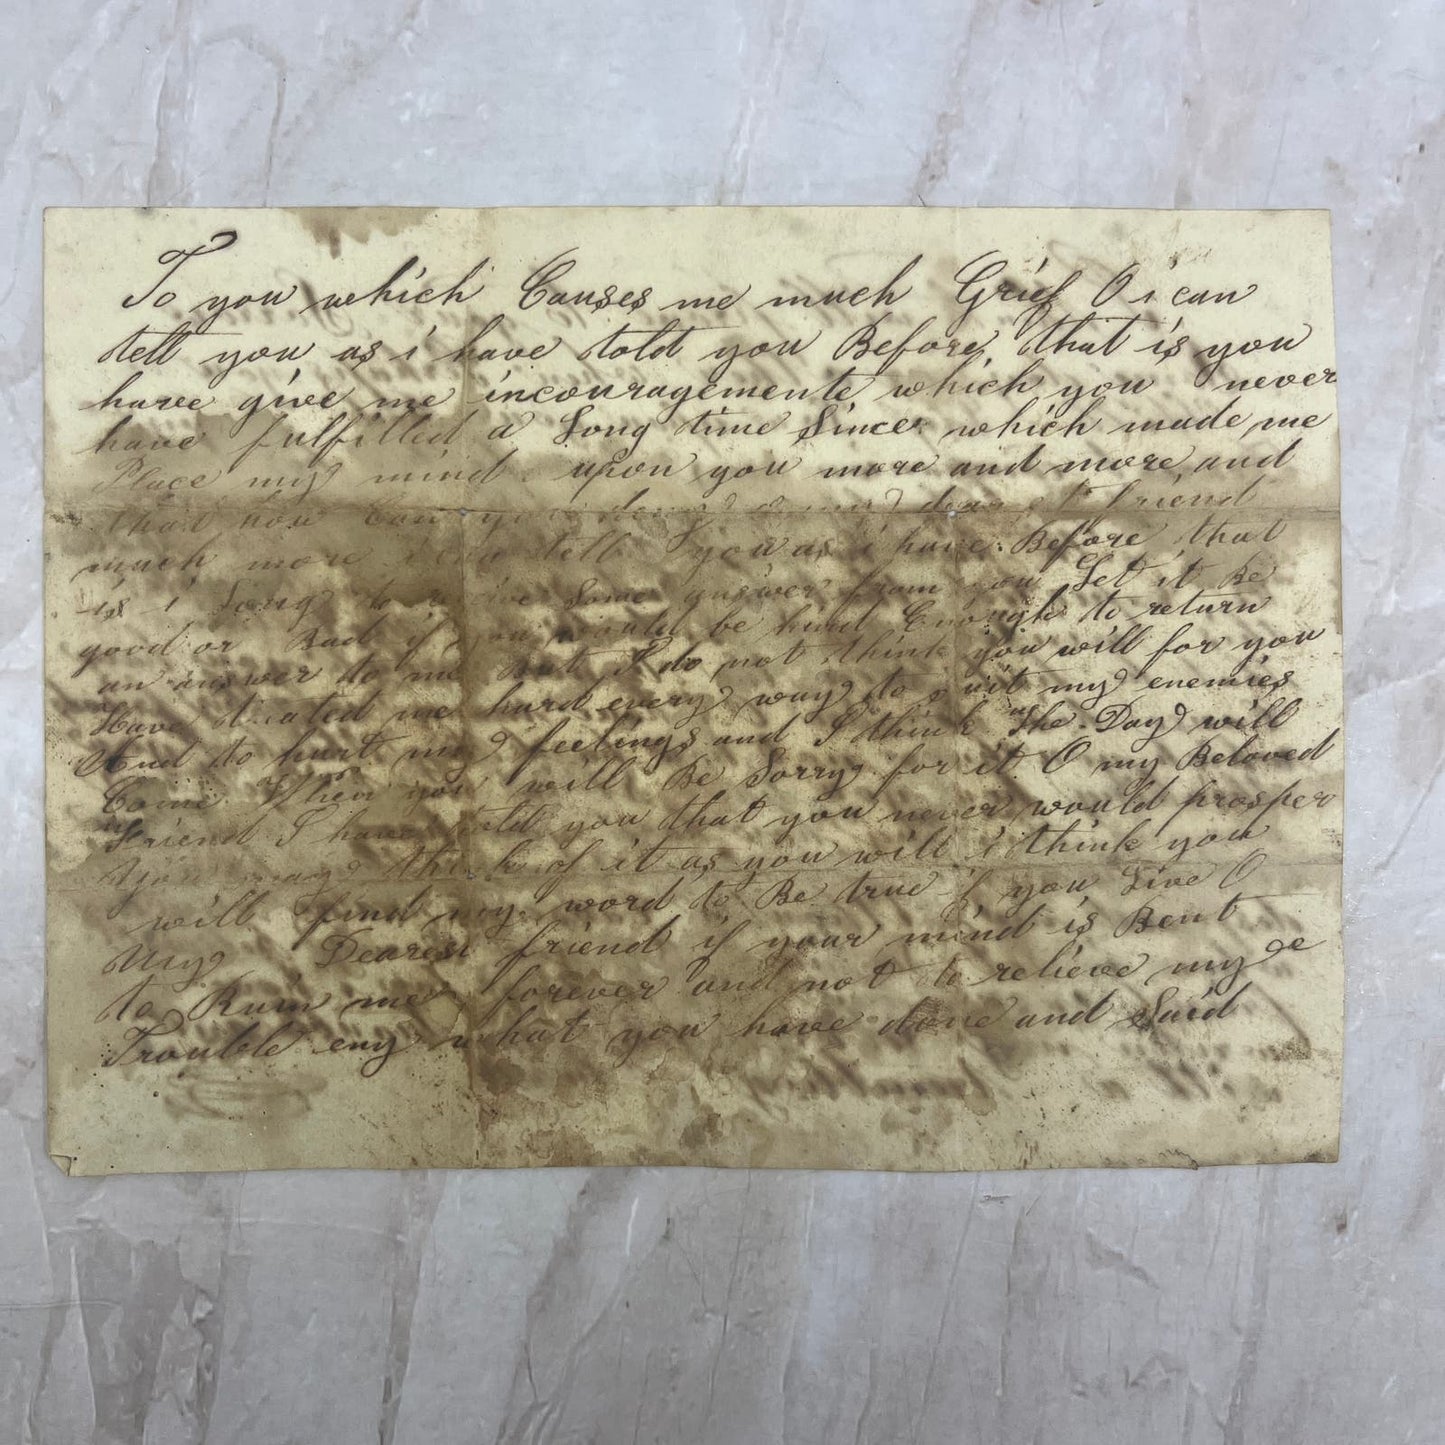 To you which Causes me much Grief O i can
tell you as i have told you Before that is you
have give me incouragemente which you never
have fulfilled a Long time Since which made me
Place my mind upon you more and more and
that how Can you friend
much more tell you as i have Before that
is i Long to Some answer from you Let it Be
good or Bad if you would be kind Enough to return
an answer to me But I do not think you will for you
Have treated me hard every way to suit my enemies
And to hurt my feelings and I think The Day will
Come When you will Be Sorry for it O my Beloved
friend I have told you that you never would prosper
you may think of it as you will i think you
will find my word to Be true if you Live O
My Dearest friend if your mind is Bent
to Ruin me forever and not to relieve my
Trouble eny what you have done and Said